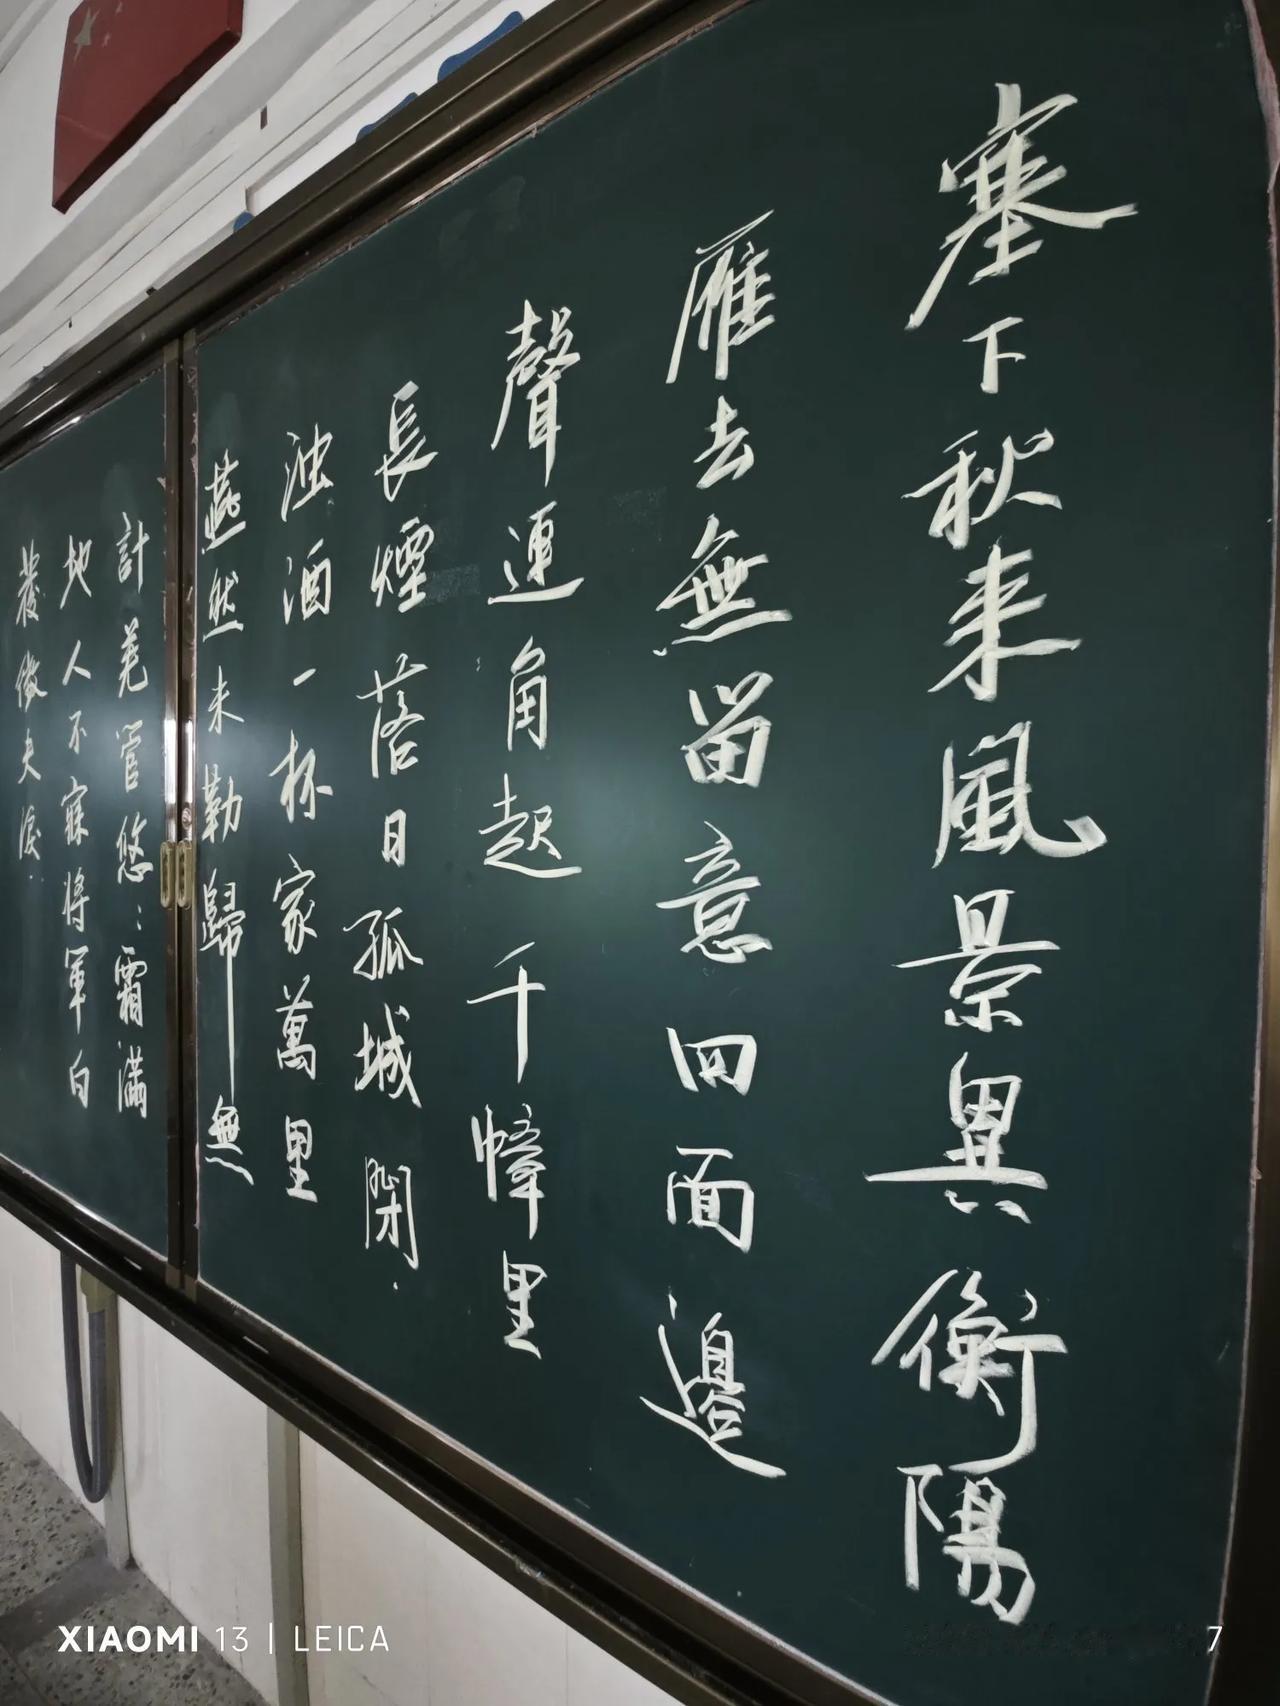 塞下秋来風景異衡陽
雁去無留意四面邊
聲連角起千幛里
長煙落日孤城閉
浊酒一杯家萬里
燕然未勒歸無
計羌管悠：霜滿
地人不寐將軍白
髮徵夫淚
XIAOMI 13 | LEICA
7